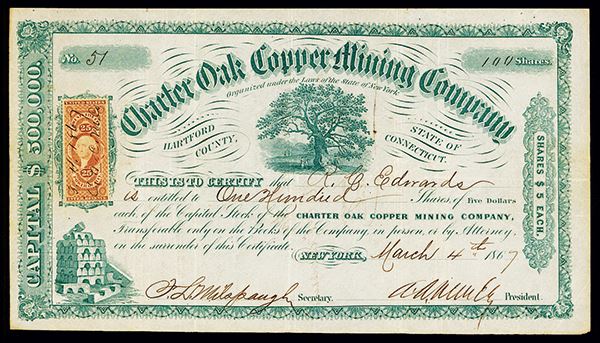 No. 51
100 Shares
Charter Oak Copper Mining Company
Organized under the Laws of the State of New York
HARTFORD COUNTY,
STATE OF CONNECTICUT.
CAPITAL $ 500,000.
SHARES $ 5 EACH.
THIS IS TO CERTIFY that R. C. Edwards
is entitled to One Hundred Shares of Five Dollars
each, of the Capital Stock of the CHARTER OAK COPPER MINING COMPANY,
Transferable only on the Books of the Company, in person, or by Attorney.
on the surrender of this Certificate.
NEW YORK, March 4th 1867
Secretary.
President.